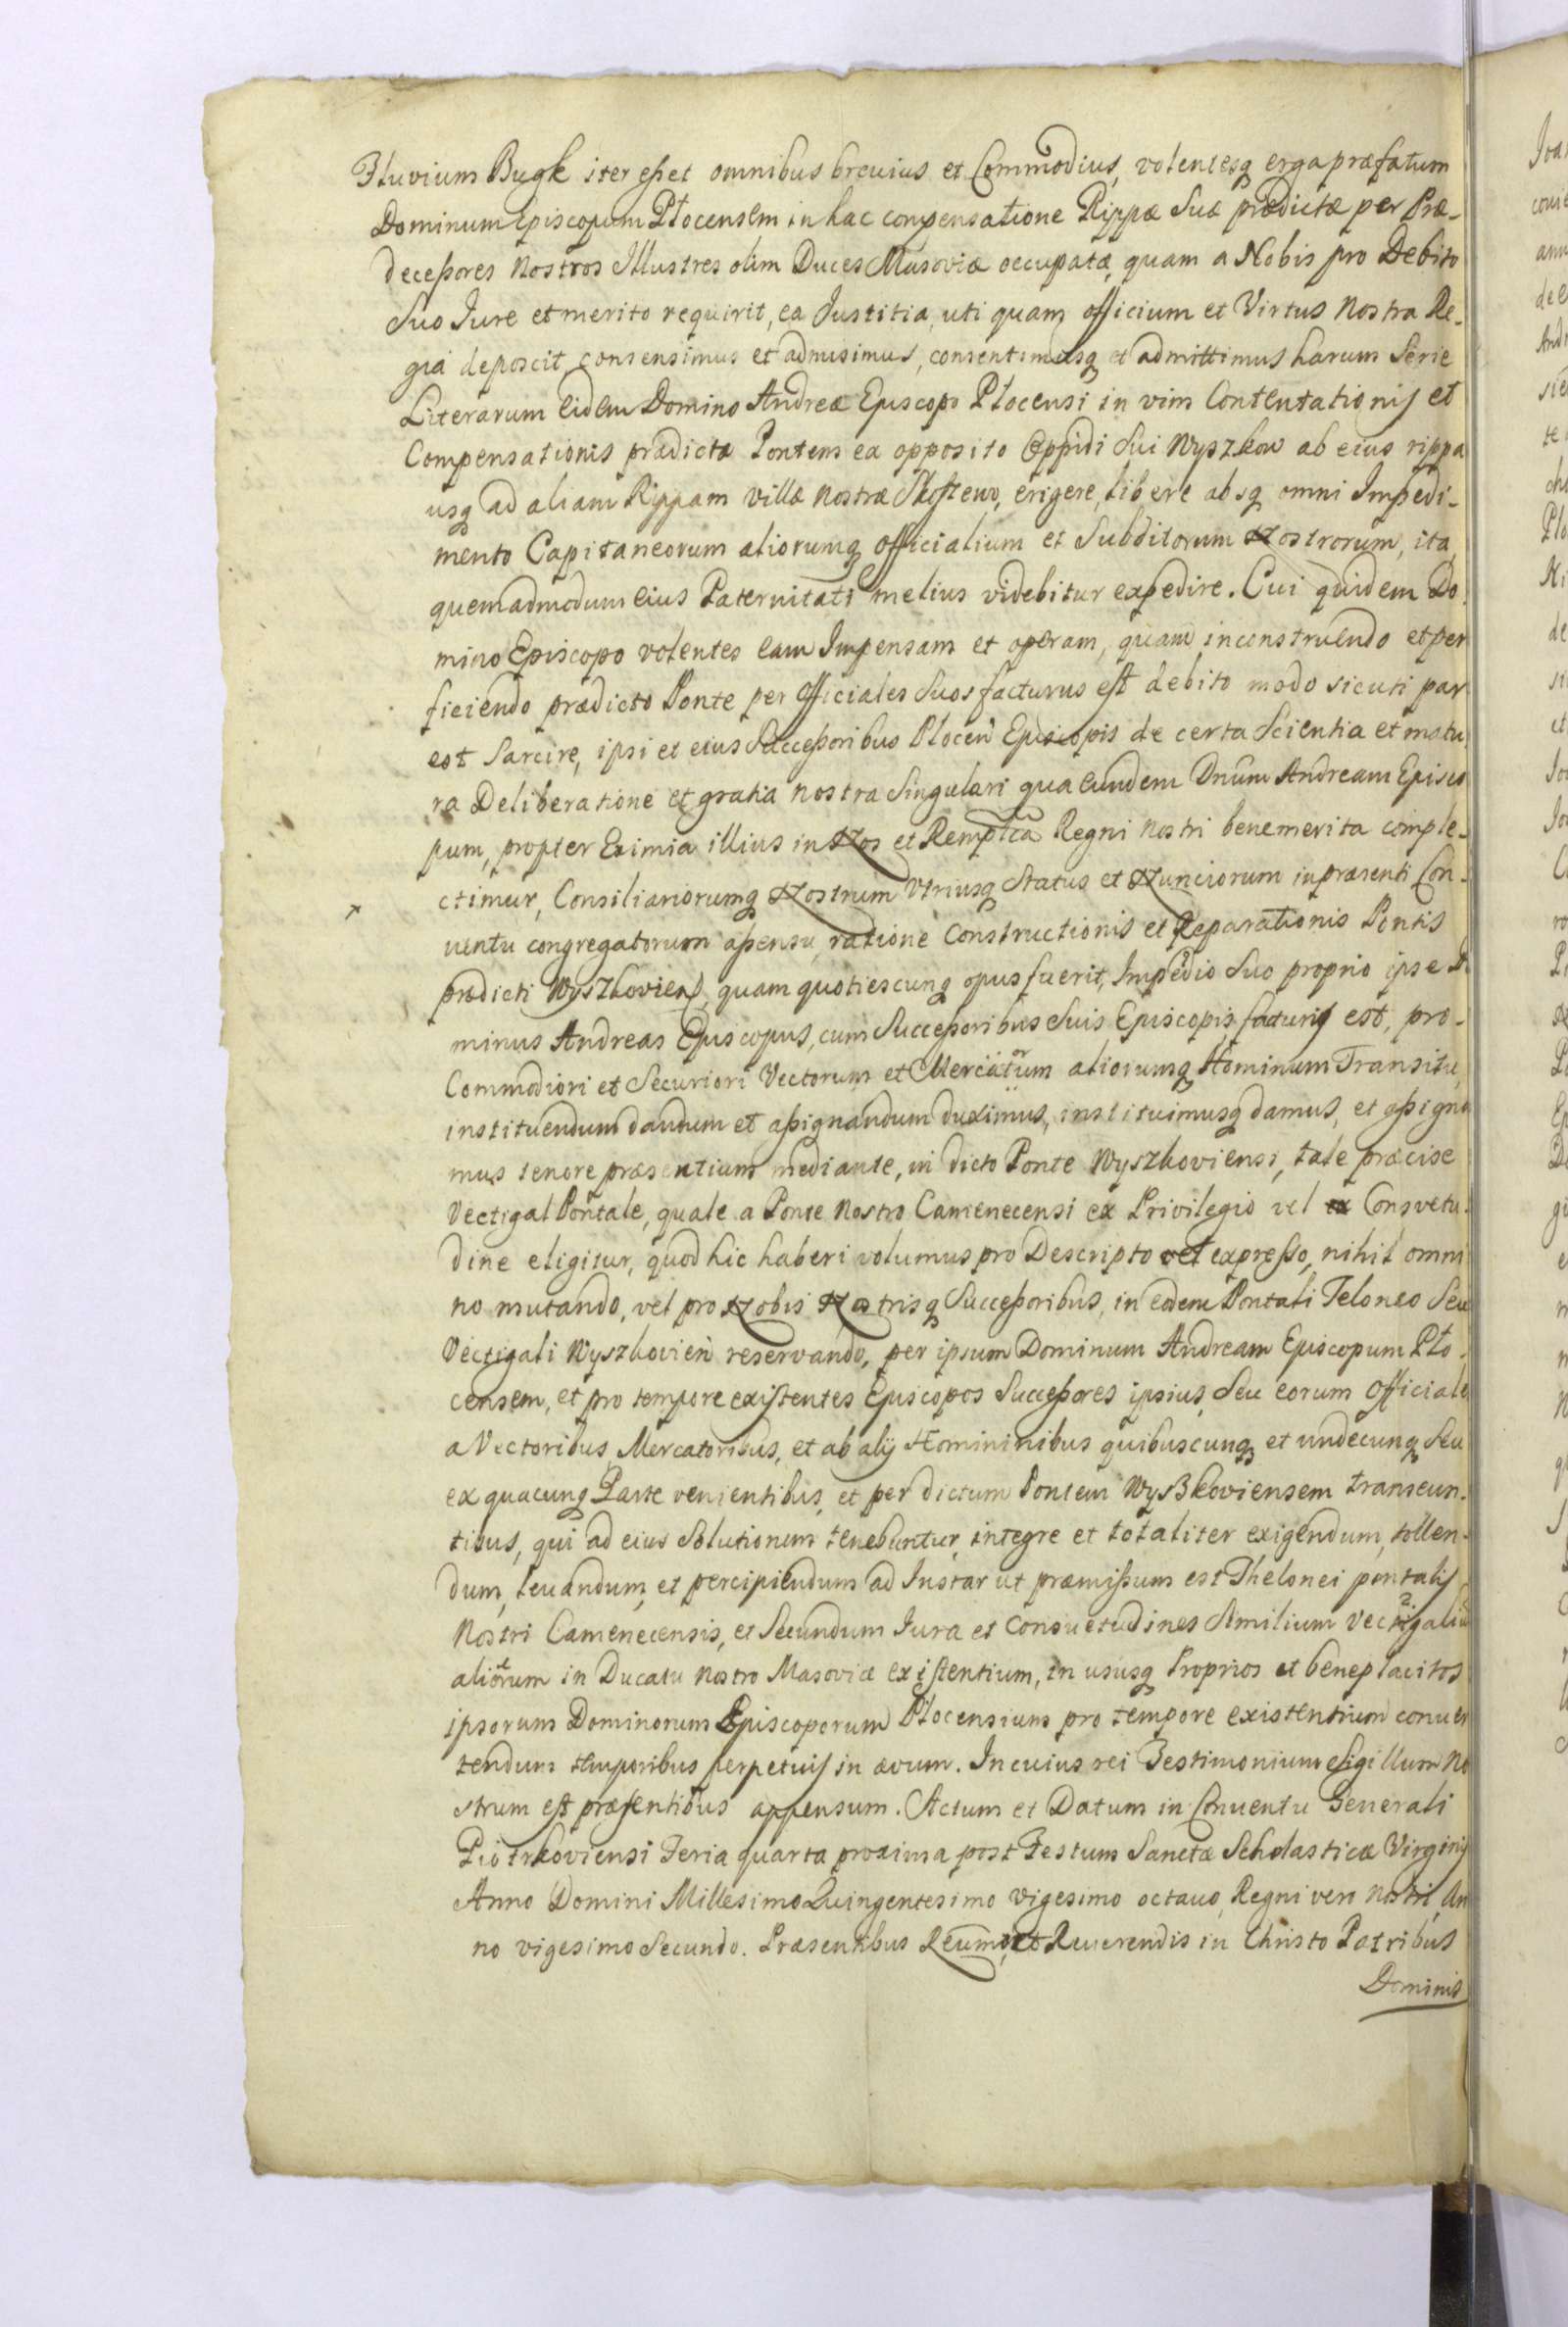 Fluvium Bugk iter eßet omnibus brevius et Commodius, volentesq erga præfatum
Dominum Episcopum Płocensem in hac compensatione Rippæ Suæ prædictæ per Præ-
deceßores Nostros Illustres olim Duces Masoviæ occupatæ, quam a Nobis pro Debito
Suo Jure et merito requirit, ea Justitia, uti quam officium et Virtus Nostra Re-
gia deposcit, consensimus et admisimus, consentimusq et admittimus harum Serie
Literarum eidem Domino Andreæ Episcopo Płocensi in vim Contentationis et
Compensationis prædictæ Pontem ex opposito Oppidi Sui Wyszkow ab eius rippa
usq ad aliam Rippam villæ Nostræ Skostewo, erigere, libere absq omni Impedi-
mento Capitaneorum aliorumq Officialium et Subditorum Nostrorum, ita,
quemadmodum eius Paternitati melius videbitur expedire. Cui quidem Do-
mino Episcopo volentes eam Impensam et operam, quam in construendo et per
ficiendo prædicto Ponte per Officiales Suos facturus est debito modo sicuti par
est Sarcire, ipsi et eius Succeßoribus Płocen Episcopis de certa Scientia et matu
ra Deliberatione et gratia nostra Singulari qua eundem Dnum Andream Episco
pum, propter Eximia illius in Nos et Remptca Regni Nostri benemerita comple-
ctimur, Consiliariorumq Nostrum Utriusq Status et Nunciorum in præsenti Con-
uentu congregatorum aßensu, ratione Constructionis et Reparationis Pontis
prædicti Wyszkovien, quam quotiescunq opus fuerit, Impedio Suo proprio ipse D
minus Andreas Episcopus, cum Succeßoribus Suis Episcopis facturus est, pro-
Commodiori et Securiori Vectorum et Mercatorum aliorumq Hominum Transitu,
instituendum dandum et aßignandum duximus, instituimusq damus, et aßigna
mus tenore præsentium mediante, in dicto Ponte Wyszkoviensi, tale præcise
Vectigal Pontale, quale a Ponte Nostro Camenecensi ex Privilegio vel ex Consvetu-
dine eligitur, quod hic haberi volumus pro Descripto vel expresso, nihil omni
no mutando, vel pro Nobis Nostrisq Succeßoribus, in eodem Pontali Teloneo Seu
Vectigali Wyszkovien reservando, per ipsum Dominum Andream Episcopum Pło-
censem, et pro tempore existentes Episcopos Succeßores ipsius, Seu eorum Officiale
a Vectoribus, Mercatoribus, et ab alijs Homininibus quibuscunq et undecunq Seu
ex quacunq Parte venientibus, et per dictum Pontem Wyszkoviensem transeun-
tibus, qui ad eius Solutionem tenebuntur, integre et totaliter exigendum, tollen-
dum, leuandum, et percipiendum ad Instar ut præmißum est Thelonei pontalis
Nostri Camenecensis, et Secundum Jura et Consuetudines Similium Vectigaliu
aliorum in Ducatu Nostro Masoviæ existentium, in ususq Proprios et beneplacitos
ipsorum Dominorum Episcoporum Płocensium pro tempore existentium conuer
tendum temporibus perpetuis in ævum. In cuius rei Testimonium Sigillum No
strum est præsentibus appensum. Actum et Datum in Conuentu Generali
Piotrkoviensi Feria quarta proxima post Festum Sanctæ Scholasticæ Virginis
Anno Domini Millesimo Quingentesimo vigesimo octauo, Regni vero Nostri, An
no vigesimo Secundo. Præsentibus Reumo, et Reuerendis in Christo Patribus
Dominis